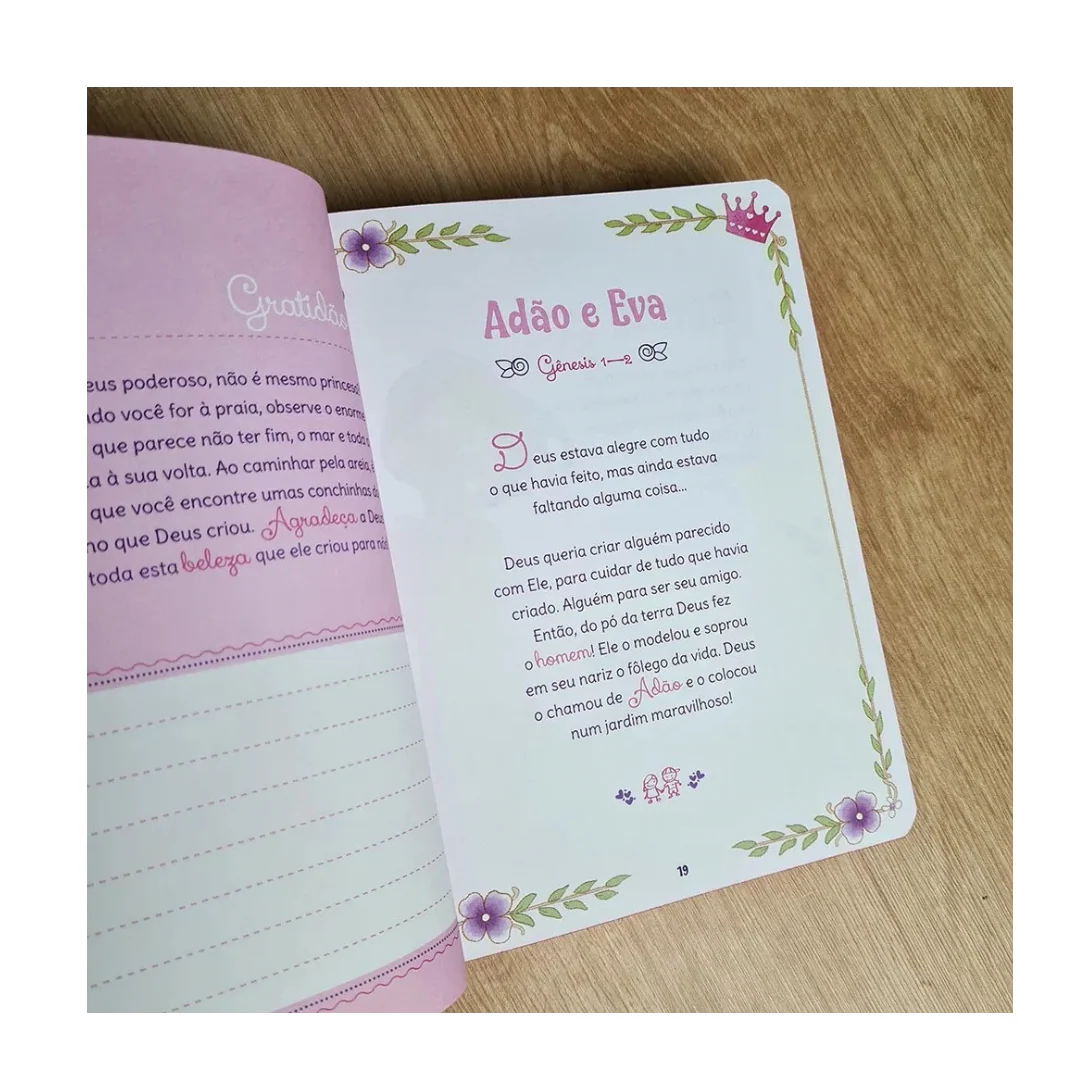 Gratidão
eus poderoso, não é mesmo princesa
ndo você for à praia, observe o enorme
que parece não ter fim, o mar e toda
a à sua volta. Ao caminhar pela areia,
que você encontre umas conchinhas
no que Deus criou. Agradeça a Deus
toda esta beleza que ele criou para nós
Adão e Eva
Gênesis 1—2
Deus estava alegre com tudo
o que havia feito, mas ainda estava
faltando alguma coisa...
Deus queria criar alguém parecido
com Ele, para cuidar de tudo que havia
criado. Alguém para ser seu amigo.
Então, do pó da terra Deus fez
o homem! Ele o modelou e soprou
em seu nariz o fôlego da vida. Deus
o chamou de Adão e o colocou
num jardim maravilhoso!
19